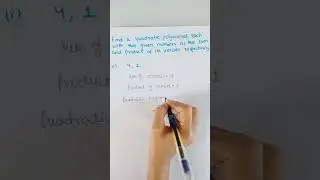 Find a quadratic polynomial each
with the given numbers as the sum
and product of its zeroes respectively
(i) 4, 1
(i) 4, 1
Sum of zeroes = 4
Product of zeroes = 1
Quadratic
Sum of
Product
Quadratic